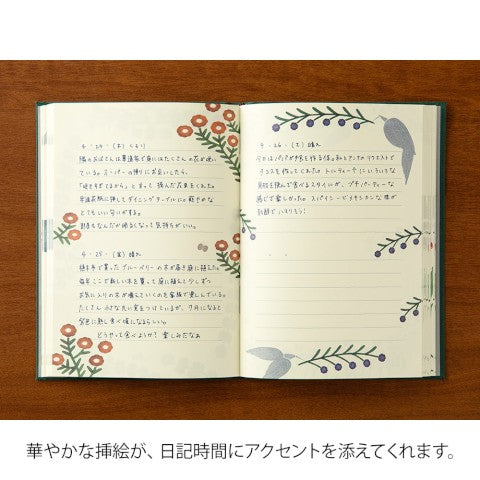 4・24・(木) くもり
隣のおばさんは園芸家で庭にはたくさんの花が咲い
ている。スーパーの帰りにお会いしたら、
「咲きすぎてるから」とまって摘んだ花束をくれた。
早速花瓶に挿してダイニングテーブルに 軽やかな
とてもいい匂いがする。
部屋もなんだか明るくなって気持ちがいい。
4・25・(金) 晴れ
植木市で買ったブルーベリーの木が庭に植えた。
毎年ここで新しい木を買って庭に植えて少しずつ
お気に入りの木が増えていくのを家族で楽しんでいる。
たくさん 小さな花に実をつけているが、7月になると
紫色に熟し食べ頃になるらしい。
どうやって食べようか？ 楽しみだなぁ
4・26・(土) 晴れ
今日はパパが夕食を作る係。私とアンナのリクエストで
タコスを作ってくれた。トルティーヤにいろいろな
具材を挟んで食べるスタイルが、プチパーティーな
感じで楽しかった。スパイシーでメキシカンな味が
新鮮で ハマりそう！
華やかな挿絵が、日記時間にアクセントを添えてくれます。